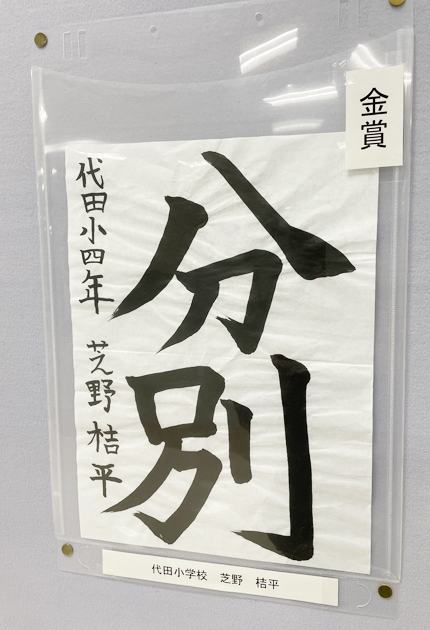 金賞
分別
代田小四年 芝野桔平
代田小学校 芝野 桔平